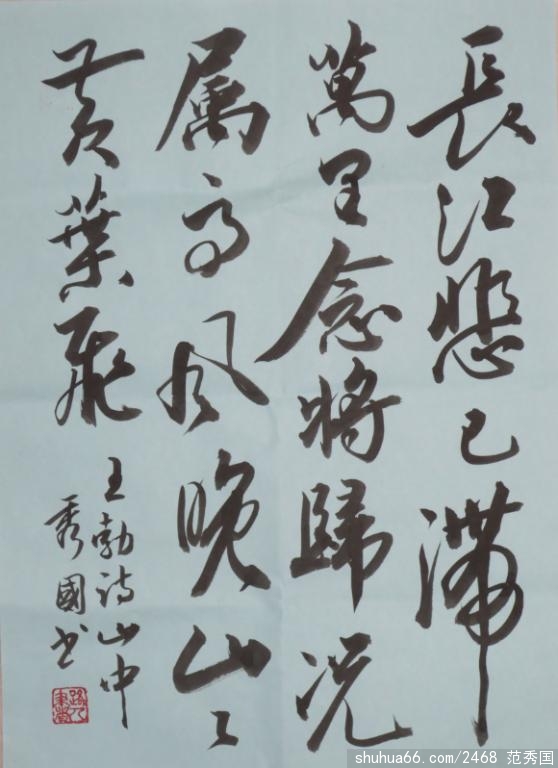 長江悲已滯
萬里念将歸况
属高风晚山々
黄葉飛
王勃诗山中
秀國书
shuhua66.com/2468 范秀国